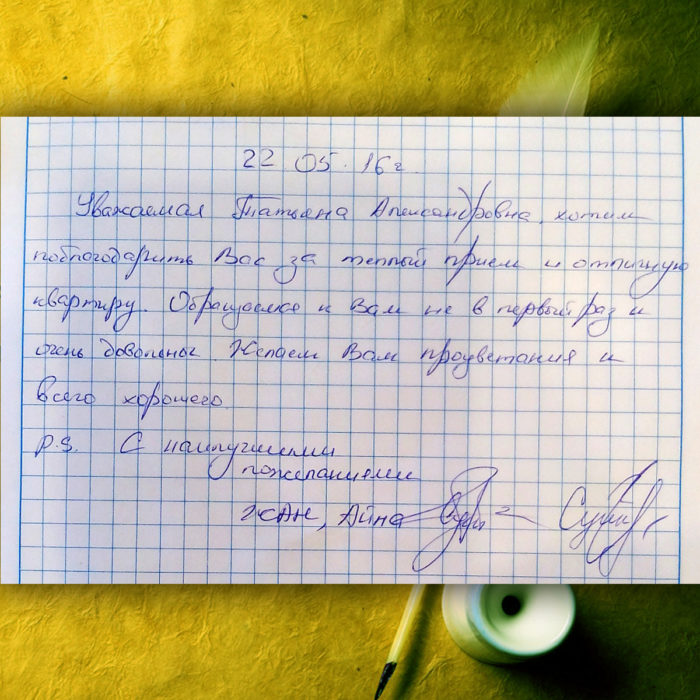 22 05. 16 г.
Уважаемая Татьяна Александровна, хотим
поблагодарить Вас за теплый прием и отличную
квартиру. Обращаемся к Вам не в первый раз и
очень довольны. Желаем Вам процветания и
всего хорошего
P.S. С наилучшими
пожеланиями
Жан, Айна